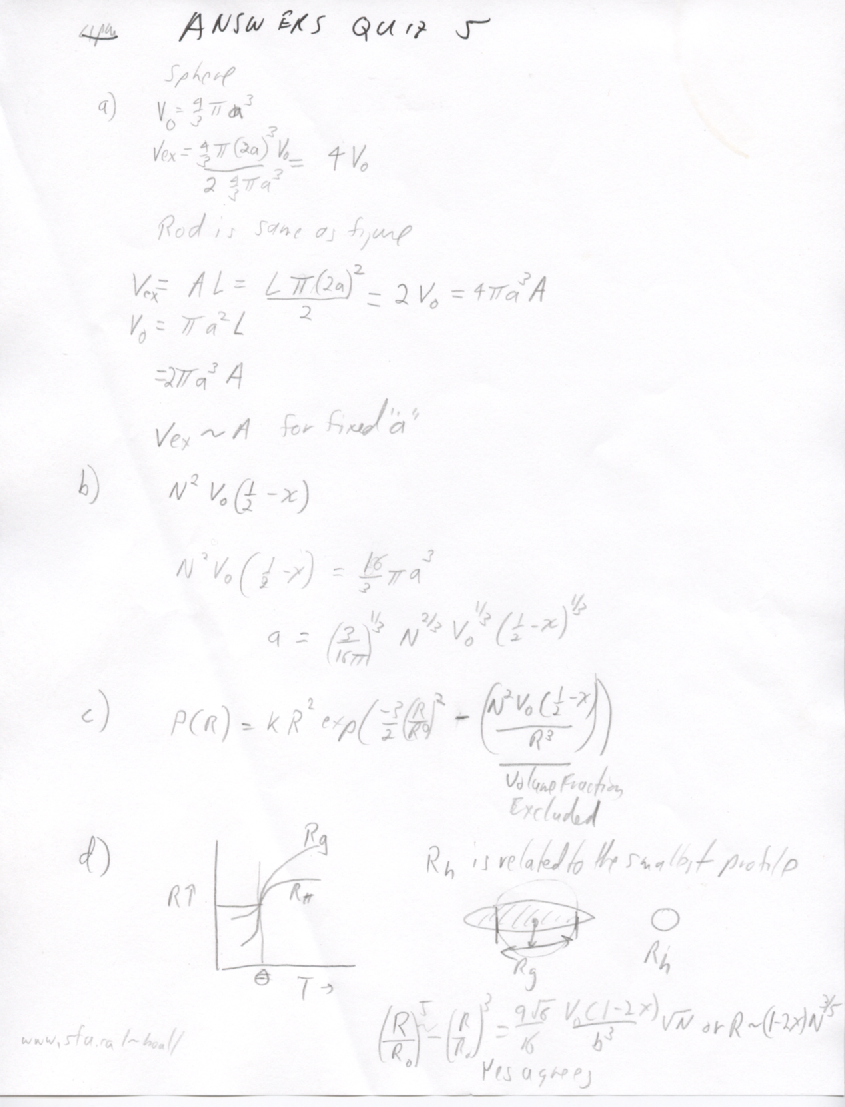 ANSWERS QUIZ 5
Sphere
a) V₀ = 4/3 π a³
Vex = 4/3 π (2a)³ V₀ / 2 4/3 π a³ = 4 V₀
Rod is same as figure
Vex = A L = L π (2a)² / 2 = 2 V₀ = 4πa³ A
V₀ = π a² L
= 2πa³ A
Vex ~ A for fixed "a"
b) N² V₀ (1/2 - x)
N² V₀ (1/2 - x) = 16/3 π a³
a = (3/16π)^1/3 N^2/3 V₀^1/3 (1/2 - x)^1/3
c) P(R) = K R² exp(-3/2 (R/R₀)² - (N² V₀ (1/2 - x) / R³))
Volume Fraction
Excluded
d) Rg
RH
R↑
θ T →
Rh is related to the smallest profile
Rg
Rh
(R/R₀)⁵ - (R/R₀)³ = 9√6/16 V₀(1-2x)/b³ √N or R ~ (1-2x)N^3/5
Yes agrees